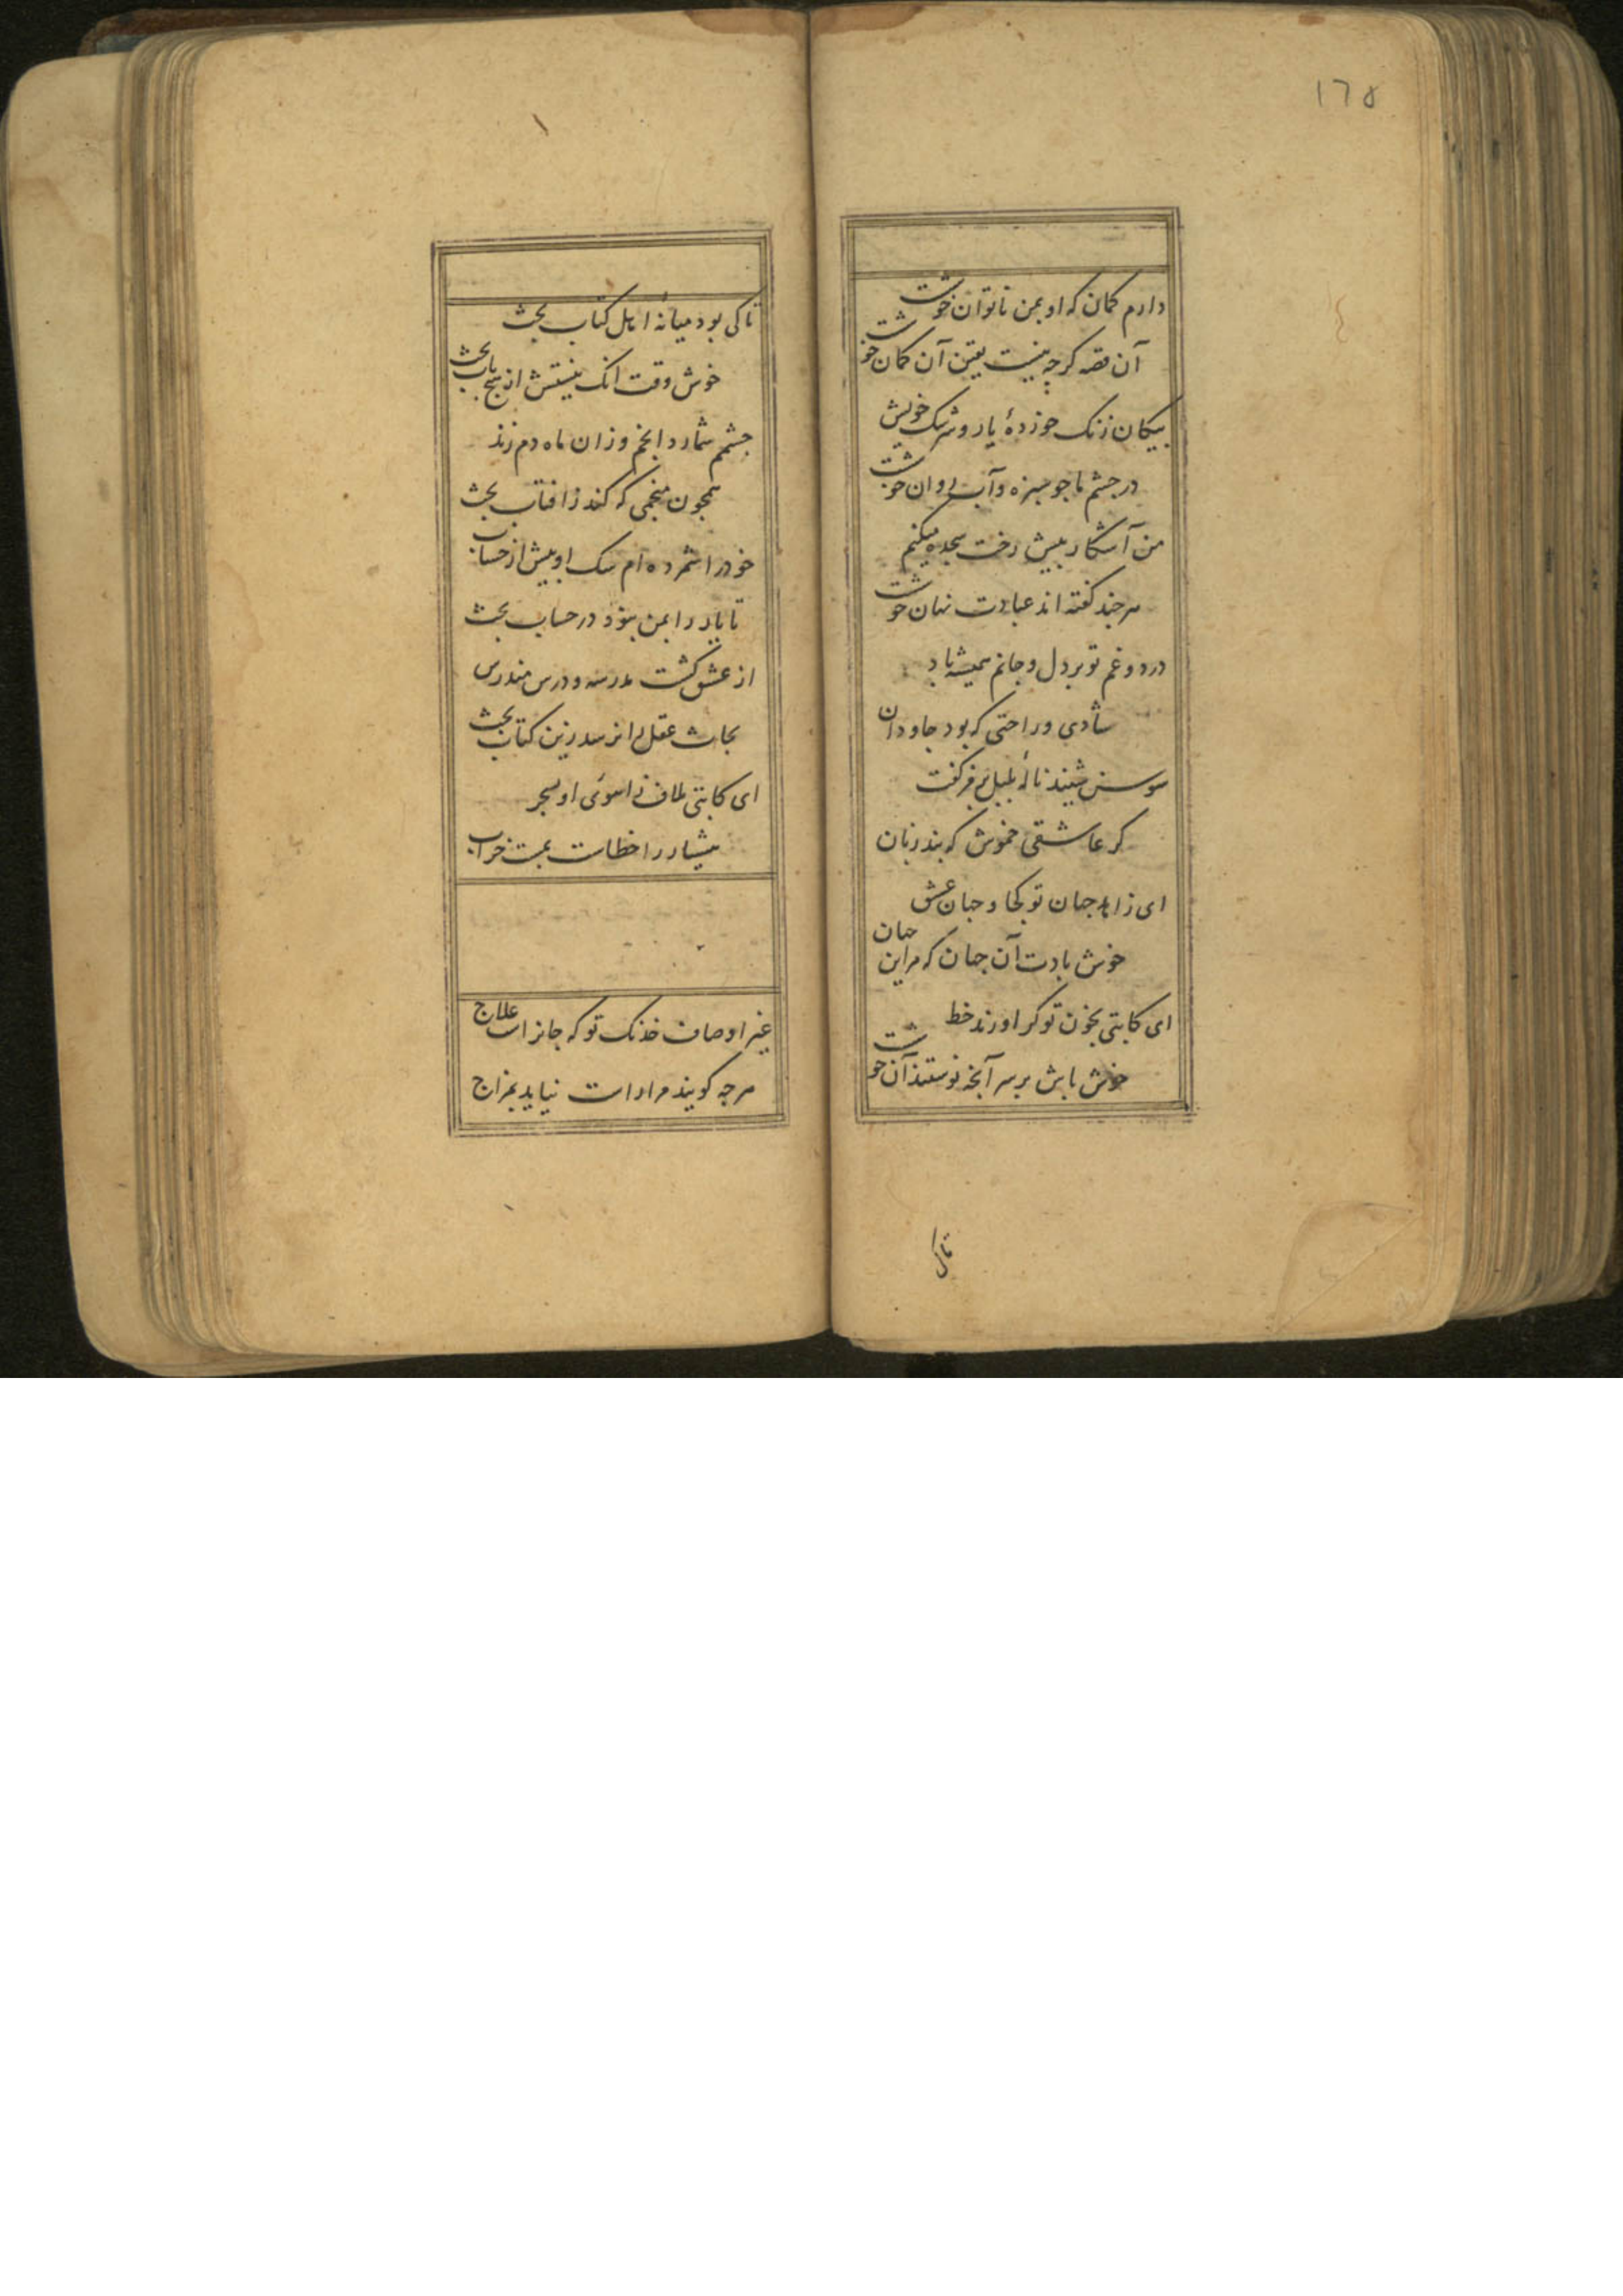 ۱۶۵
دارم کمان که او بمن ناتوان خوشت
آن قصه کرچه نیست یقین آن کمان خوشت
پیکان زنک خوردهٔ یار و سرشک خویش
در چشم ما جو سبزه و آب روان خوشت
من آشکار پیش رخت سجده میکنم
هرچند کفته اند عبادت نهان خوشت
درد و غم تو بر دل و جانم همیشه باد
شادی و راحتی که بود جاودان
سوسن شنید نالهٔ بلبل بر فر کفت
کر عاشقی خموش که بند زبان
ای زاهد جهان تو کجا و جهان عشق
خوش بادت آن جهان که مر این جهان
ای کاتبی بخون تو کر اورند خط
خوش باش بر سر آنچه نوستند آن خوشت
تاکی
تاکی بود میانهٔ اهل کتاب بحث
خوش وقت انک نیستش از هیچ باب بحث
چشمم شمارد انجم وزان ماه دم زند
همچون منجمی که کند ز افتاب بحث
خودرا شمرده ام سک او بیش از حساب
تا یار را بمن بود در حساب بحث
از عشق کشت مدرسه و درس مندرس
بحاث عقل را نرسد زین کتاب بحث
ای کاتبی ملاف ز اهوی او بسحر
هشیار را خطاست بمست خراب
غیر اوصاف خدنک تو که جانراست علاج
هرچه کویند مرا راست نیاید بمزاج